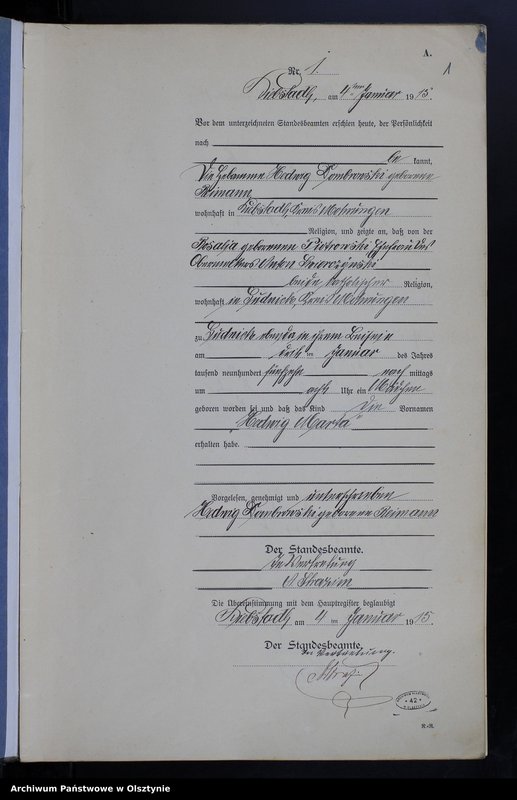 A.
1
Nr. 1.
Liebstadt, am 4ten Januar 1915.
Vor dem unterzeichneten Standesbeamten erschien heute, der Persönlichkeit
nach
be kannt,
Die Hebamme Hedwig Dombrowski geborene
Reimann
wohnhaft in Liebstadt, Kreis Mohrungen
Religion, und zeigte an, daß von der
Rosalia geborenen Piotrowski Ehefrau des
Anton
beide katholischer Religion,
wohnhaft in Kreis Mohrungen
zu in ihrem Beisein
am Januar des Jahres
tausend neunhundert fünfzehn nach mittags
um acht Uhr ein Mädchen
geboren worden sei und daß das Kind die Vornamen
„Hedwig Marta"
erhalten habe.
Vorgelesen, genehmigt und unterschrieben
Hedwig Dombrowski geborene Reimann
Der Standesbeamte.
In Vertretung
Die Übereinstimmung mit dem Hauptregister beglaubigt
Liebstadt, am 4 ten Januar 1915.
Der Standesbeamte,
In Vertretung.
42
Archiwum Państwowe w Olsztynie